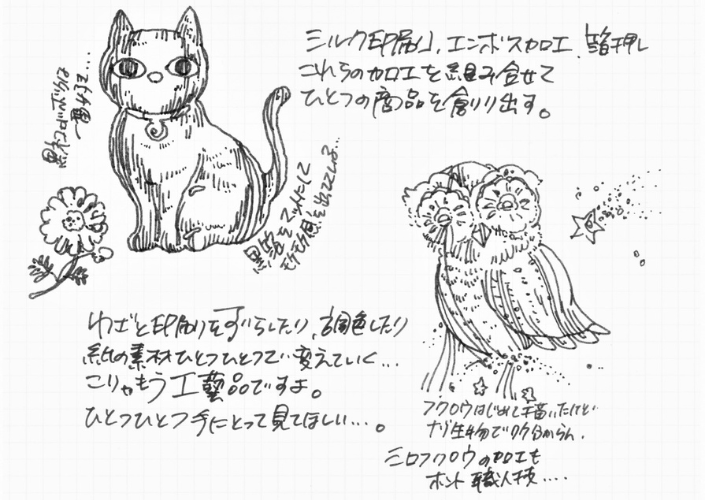 シルク印刷、エンボス加工、箔押し
これらの加工を組み合せて
ひとつの商品を創り出す。
黒ネコのボクは
一番好き…
黒箔を
モフモフ感を出してる…
わざと印刷をずらしたり、調色したり
紙の素材ひとつひとつで変えていく…
こりゃもう工藝品ですよ。
ひとつひとつ手にとって見てほしい…。
フクロウはじめて描いたけど
ナゾ生物でワケ分からん.
ミミロフクロウの加工も
ホント職人技….